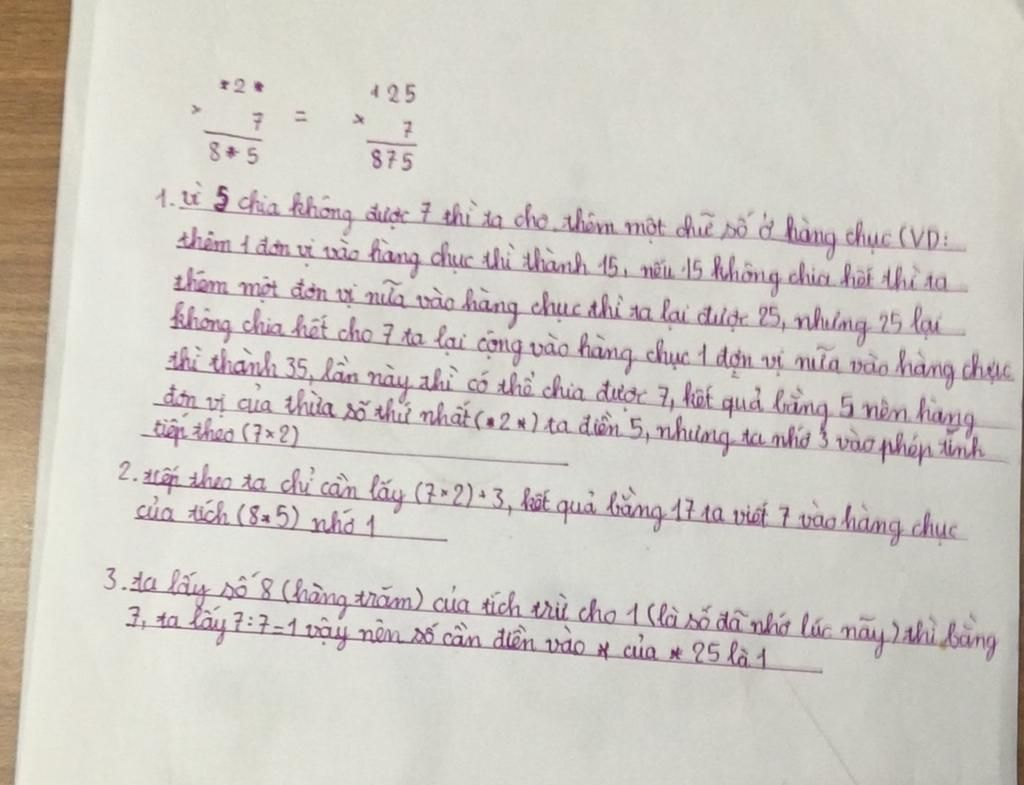 *2* 125
× 7 = × 7
8*5 875
1. vì 5 chia không được 7 thì ta cho thêm một chữ số ở hàng chục (VD:
thêm 1 đơn vị vào hàng chục thì thành 15, nếu 15 không chia hết thì ta
thêm một đơn vị nữa vào hàng chục thì ta lại được 25, nhưng 25 lại
không chia hết cho 7 ta lại cộng vào hàng chục 1 đơn vị nữa vào hàng chục
thì thành 35, lần này thì có thể chia được 7, kết quả bằng 5 nên hàng
đơn vị của thừa số thứ nhất (*2*) ta điền 5, nhưng ta nhớ 3 vào phép tính
tiếp theo (7×2)
2. tiếp theo ta chỉ cần lấy (7×2)+3, kết quả bằng 17 ta viết 7 vào hàng chục
của tích (8*5) nhớ 1
3. ta lấy số 8 (hàng trăm) của tích trừ cho 1 (là số đã nhớ lúc nãy) thì bằng
7, ta lấy 7:7=1 vậy nên số cần điền vào * của *25 là 1